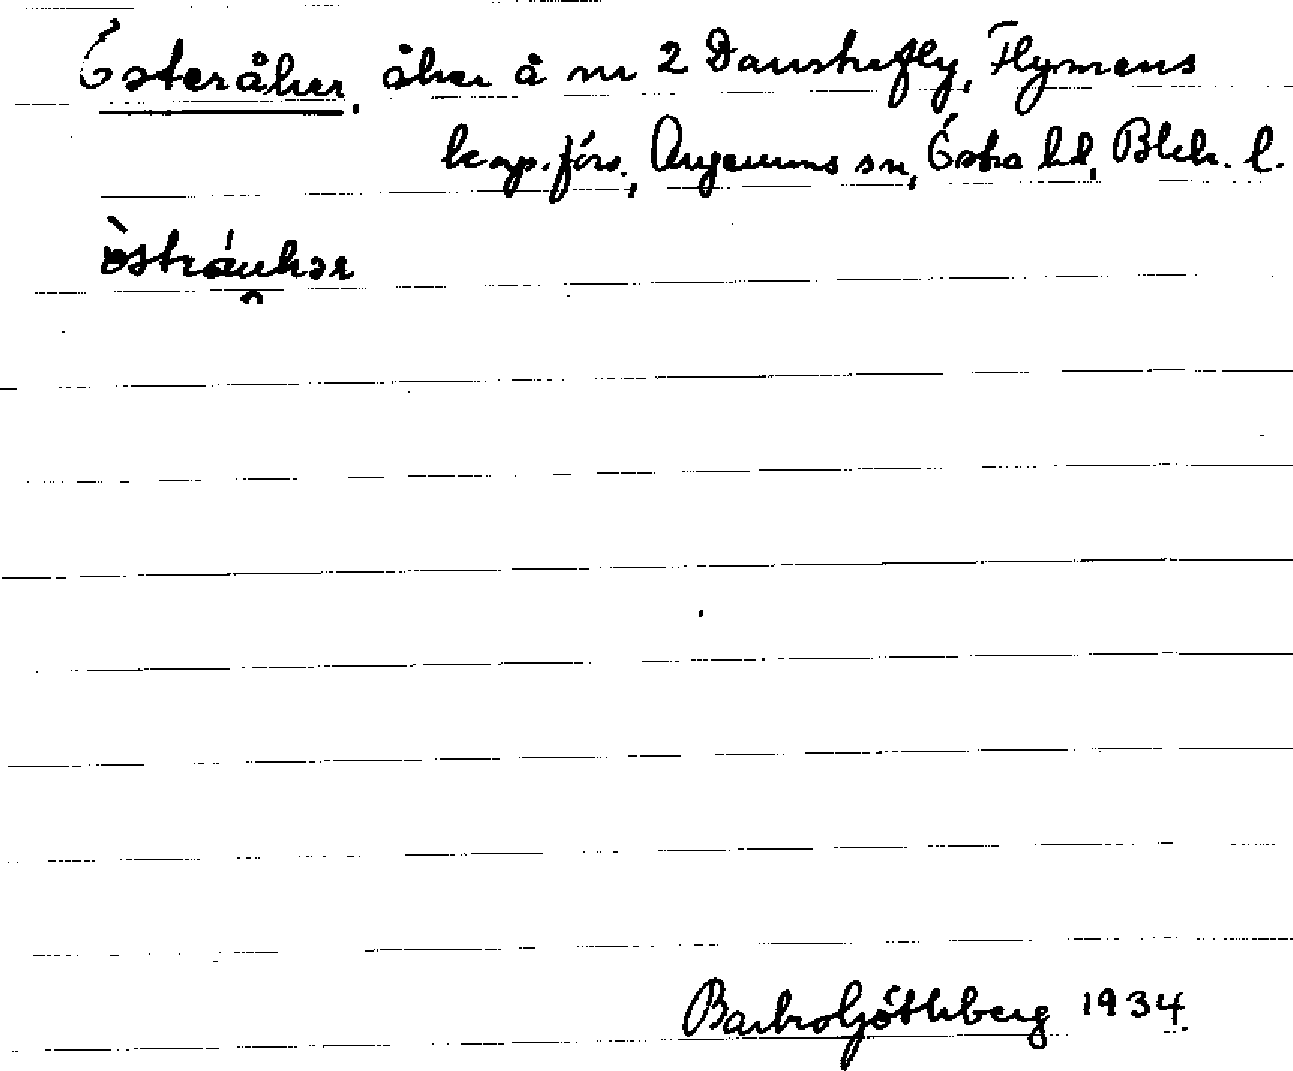 Österåker, åker å nr 2 Danskefly, Flymens
kap.förs., Augerums sn, Östra hd, Blek. l.
östráukər
Barbro Göthberg 1934.